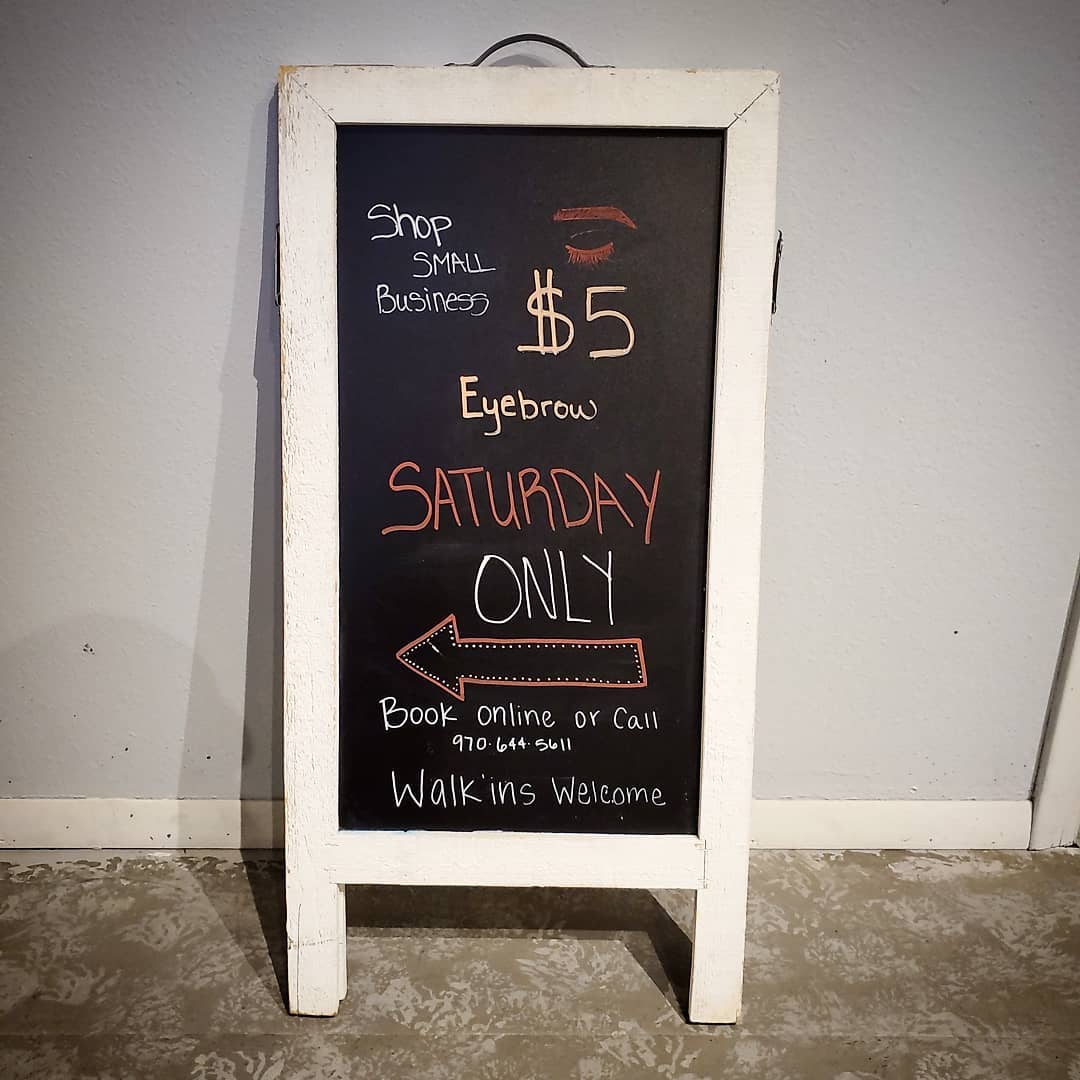 Shop
SMALL
Business
$5
Eyebrow
SATURDAY
ONLY
Book online or Call
970·644·5611
Walk'ins Welcome